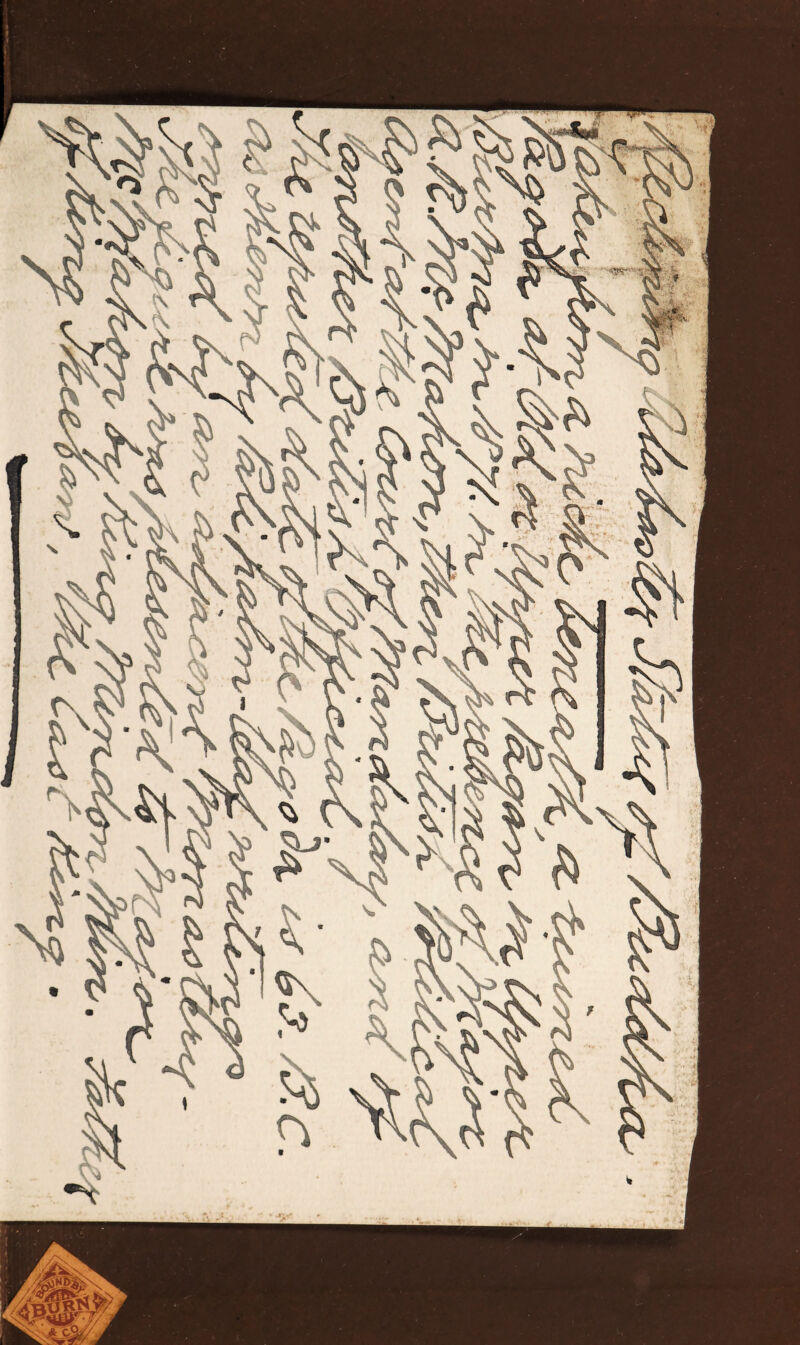 Reclining Alabaster Statue of Buddha.
Taken from a niche beneath, a ruined
Pagoda at Old or Upper Pagan in Upper
Burma in 1871. in the presence of Major
A.R. McMahon, then British Political
Agent at the Court of Mandalay, and of
another British Official.
The reputed date of the Pagoda is 63. B.C.
as shewn by Pali palm-leaf writings
owned by an adjacent Monastery-
The figure was presented to Major
McMahon by King Mindon Min. Father
of King Theebaw, the last King.
BOUND BY
BURN
& CO